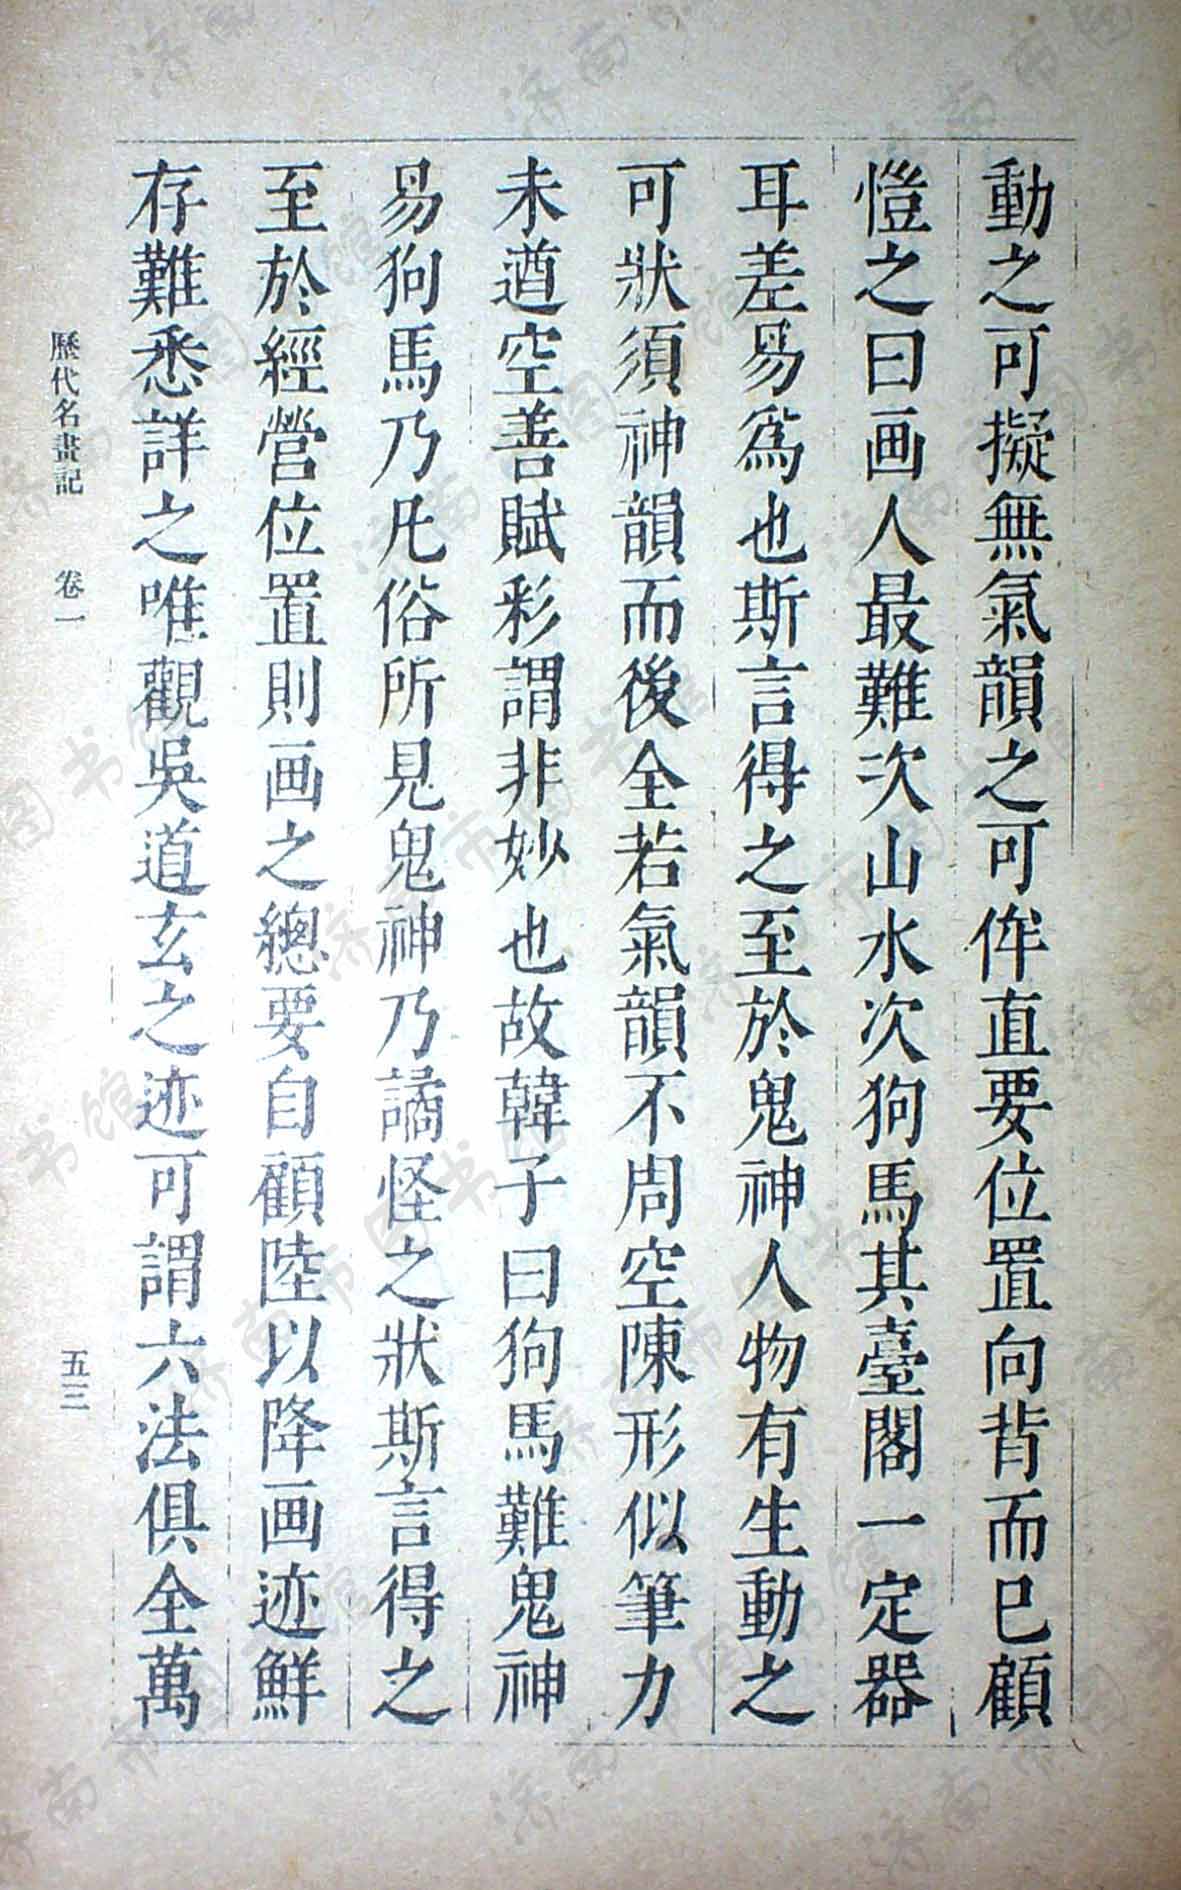 動之可擬無氣韻之可侔直要位置向背而已顧
愷之曰画人最難次山水次狗馬其臺閣一定器
耳差易爲也斯言得之至於鬼神人物有生動之
可狀須神韻而後全若氣韻不周空陳形似筆力
未遒空善賦彩謂非妙也故韓子曰狗馬難鬼神
易狗馬乃凡俗所見鬼神乃譎怪之狀斯言得之
至於經營位置則画之總要自顧陸以降画迹鮮
存難悉詳之唯觀吳道玄之迹可謂六法俱全萬
歷代名畫記 卷一 五三
济南市图书馆